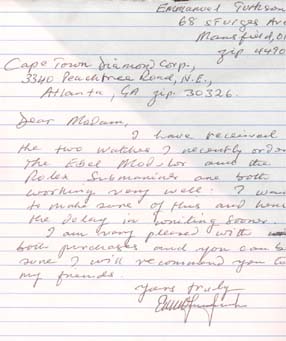 Emmanuel Turkson
68 Sturges Ave
Mansfield, O
zip 4490
Cape Town Diamond Corp.,
3340 Peachtree Road, N.E.,
Atlanta, GA zip. 30326.
Dear Madam,
I have received
the two watches I recently order
The Ebel Modulor and the
Rolex Submariner are both
working very well. I wan
to make sure of this and hence
the delay in writing sooner.
I am very pleased with
both purchases and you can be
sure I will recommend you to
my friends.
Yours truly